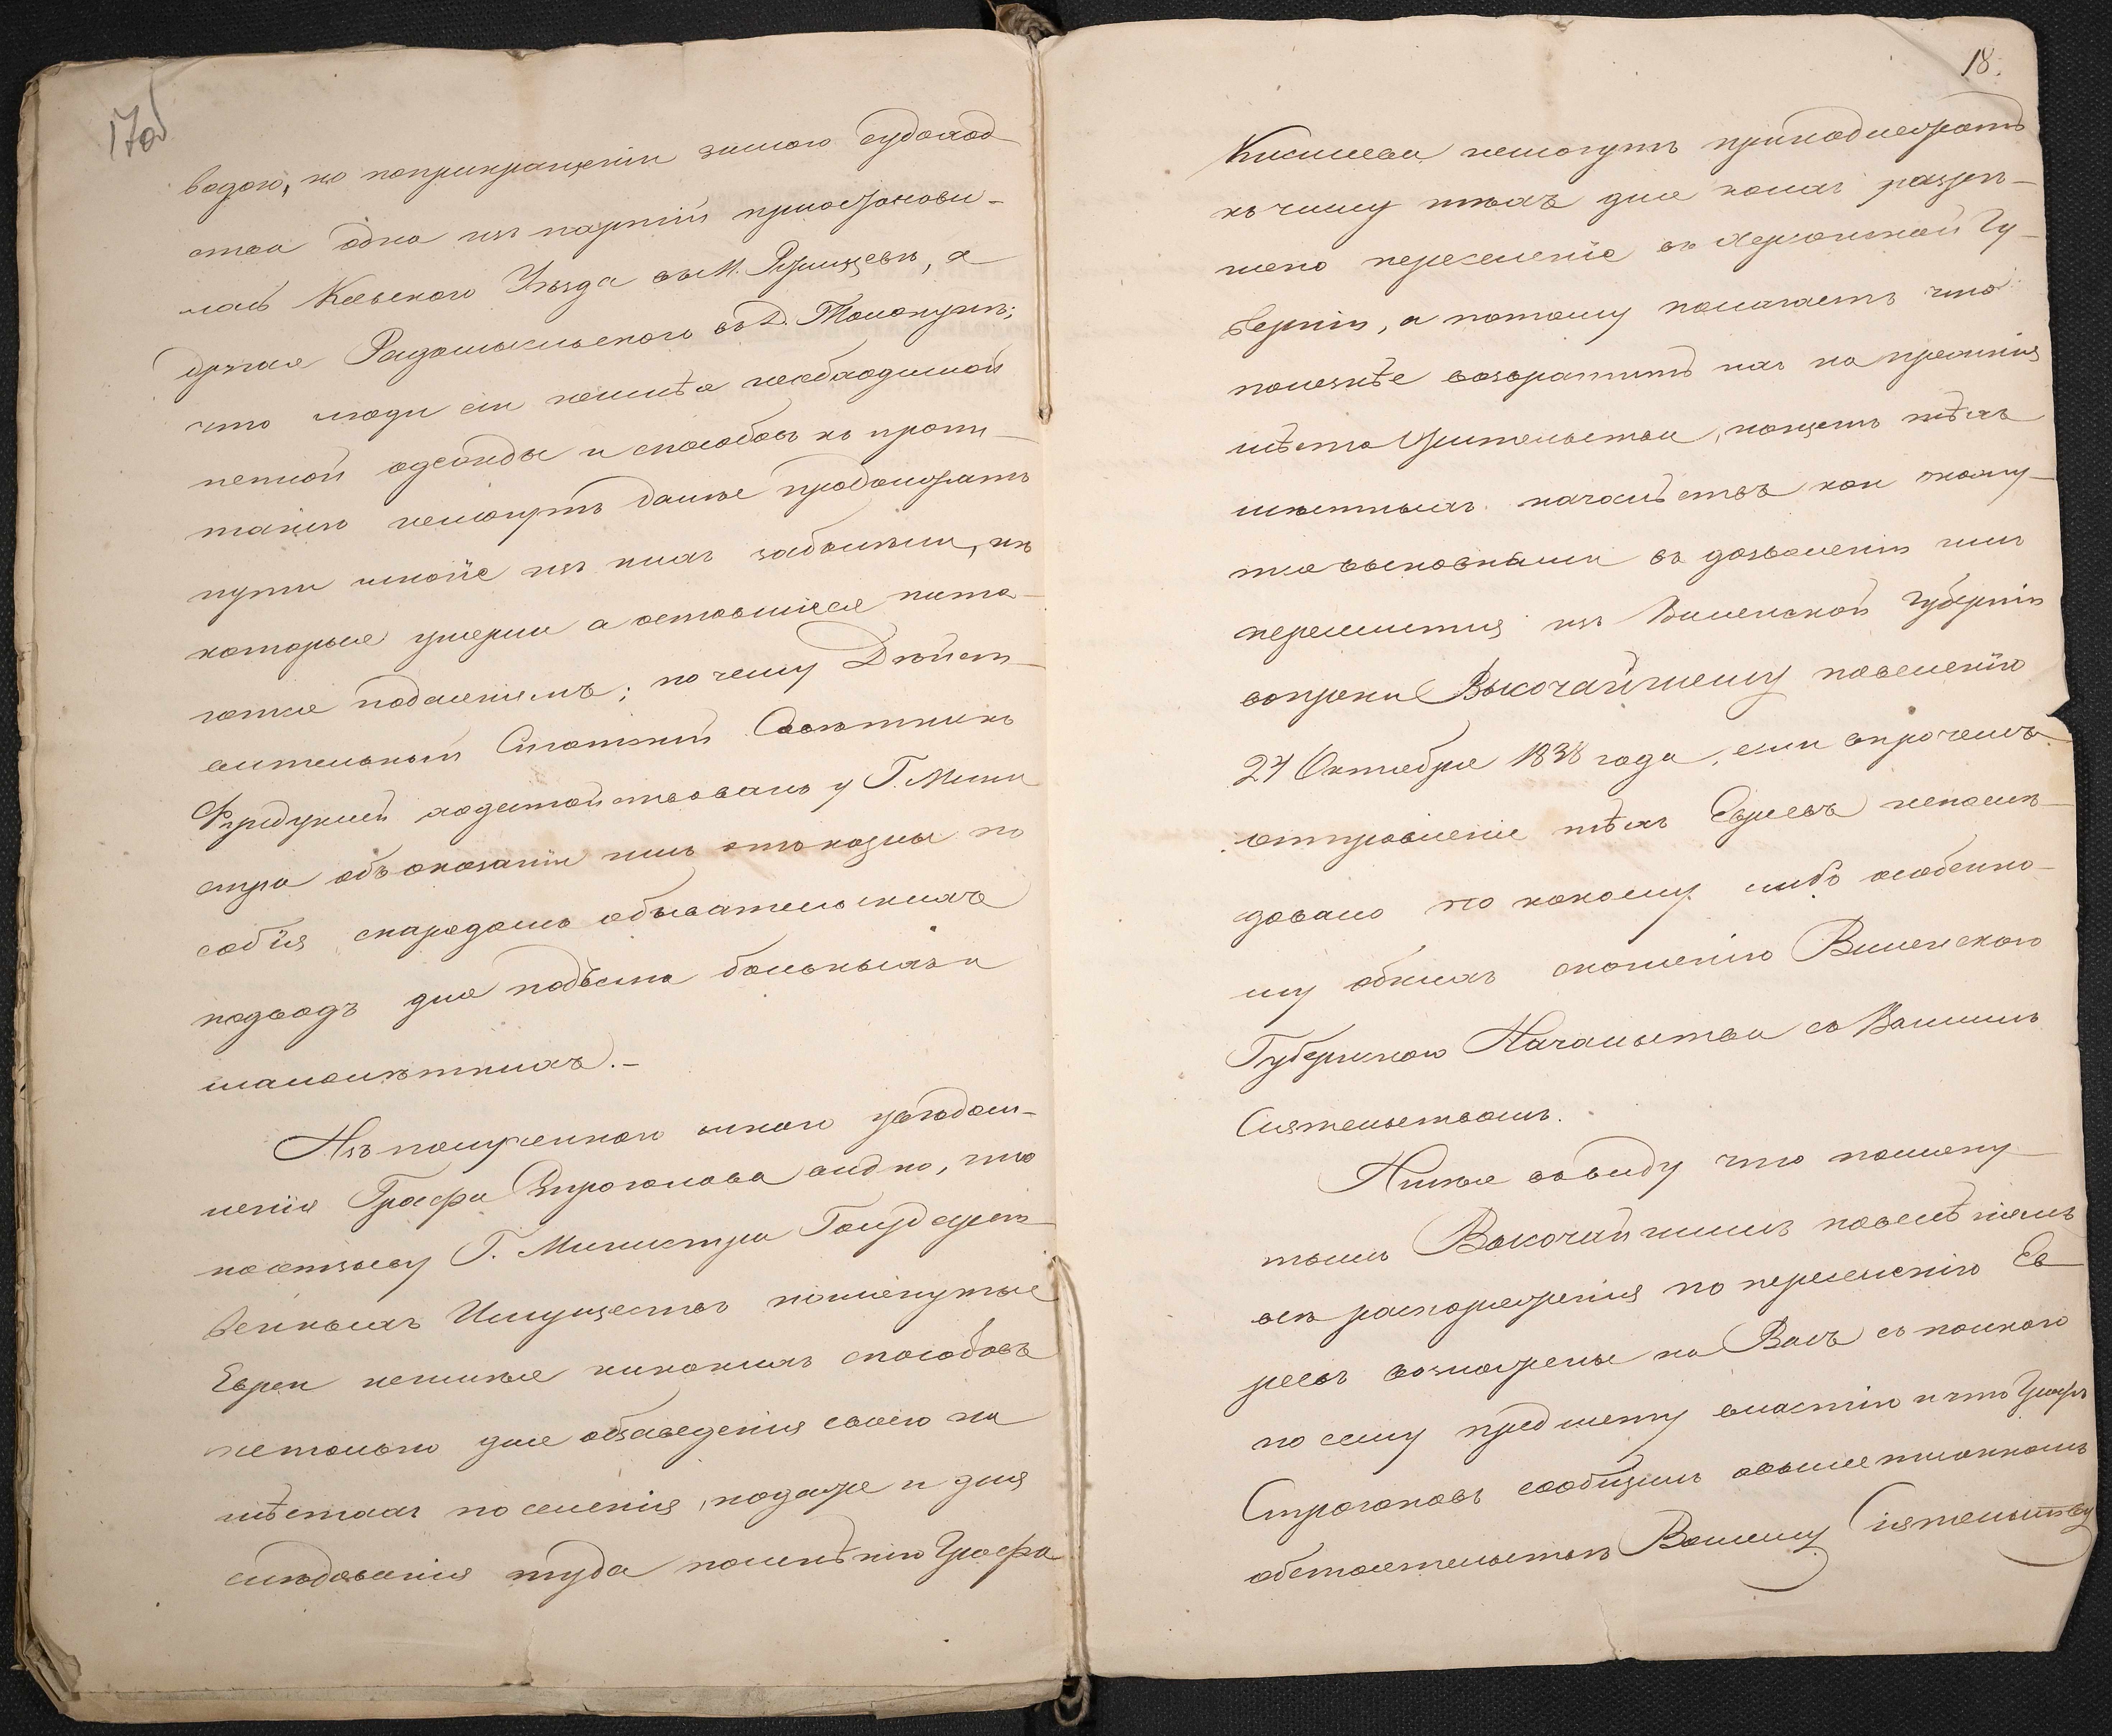 17об
водою, но попрекращеніи зимою судоход
ства одна изъ партій приостанови-
лась Кіевскаго Уѣзда въ М. Ржищевѣ, а
другая Радомысльскаго въ Д.
что люди сіи неимѣя необходимой
теплой одежды и способовъ къ пропи-
танію немогутъ далѣе продолжать
пути многіе изъ нихъ заболѣли, нѣ
которые умерли а оставшіеся пита-
ются подаяніемъ; по чему Дѣйст-
вительный Статскій Совѣтникъ
Фундуклей ходатайствовалъ у Г. Мини
стра объ оказаніи имъ отъ казны по
собія снарядомъ обывательскихъ
подводъ для подъема больныхъ и
малолѣтнихъ.-
Изъ полученнаго мною увѣдом-
ленія Графа Строгонова видно, что
по отзыву Г. Министра Государст-
венныхъ Имуществъ помянутые
Евреи неимѣя никакихъ способовъ
нетолько для обзаведенія своего на
мѣстахъ поселенія, но даже и для
слѣдованія туда помнѣнію Графа
18.
Киселева немогутъ принадлежать
къ числу тѣхъ для коихъ разрѣ-
шено переселеніе въ Херсонской Гу-
берніи, а потому полагаетъ что
полезнѣе возвратить ихъ на прежнія
мѣста жительства, на щетъ тѣхъ
мѣстныхъ начальствъ кои окажу-
тся виновными въ дозволеніи имъ
переселиться изъ Виленской Губерніи
вопреки Высочайшему повелѣнію
24 Октября 1838 года, если впрочемъ
отправленіе тѣхъ Евреевъ непослѣ-
довало по какому либо особенно-
му обнихъ сношенію Виленскаго
Губернскаго Начальства съ Вашимъ
Сіятельствомъ.
Имѣя ввиду что помяну-
тымъ Высочайшимъ повелѣніемъ
всѣ распоряженія по переселенію Ев
реевъ возложены на Васъ съ полною
по сему предмету властію и что Графъ
Строгоновъ сообщилъ о вышеписанномъ
обстоятельствѣ Вашему Сіятельству